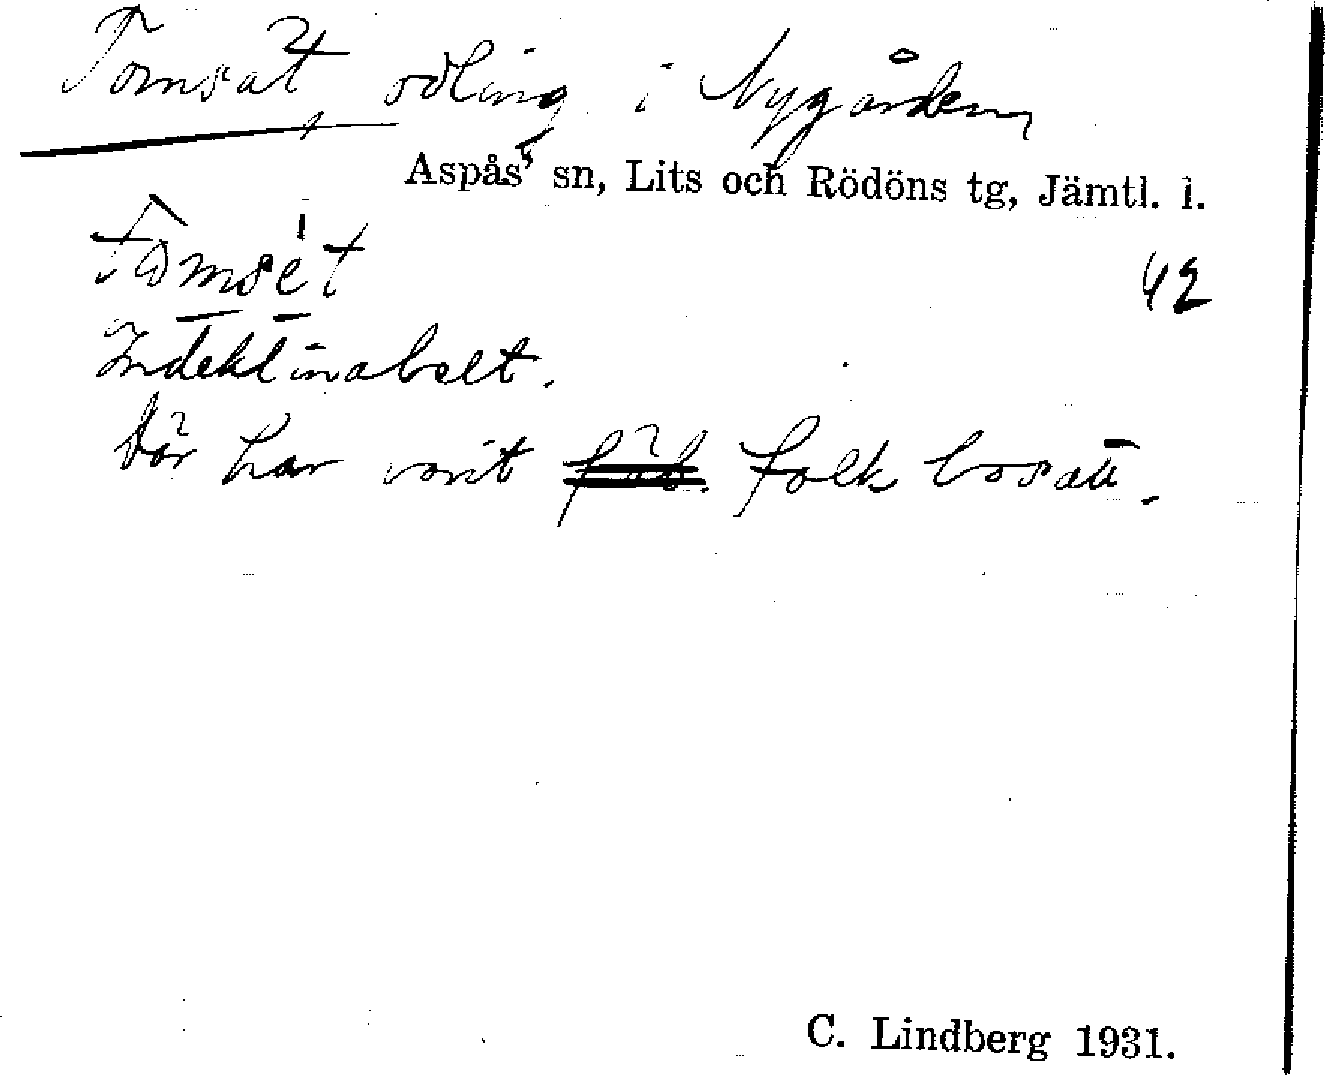 Tomsät, odling i Nygården,
Aspås sn, Lits och Rödöns tg, Jämtl. l.
tômsét
42
Indeklinabelt.
Där har varit fäb. folk bosatt.
C. Lindberg 1931.